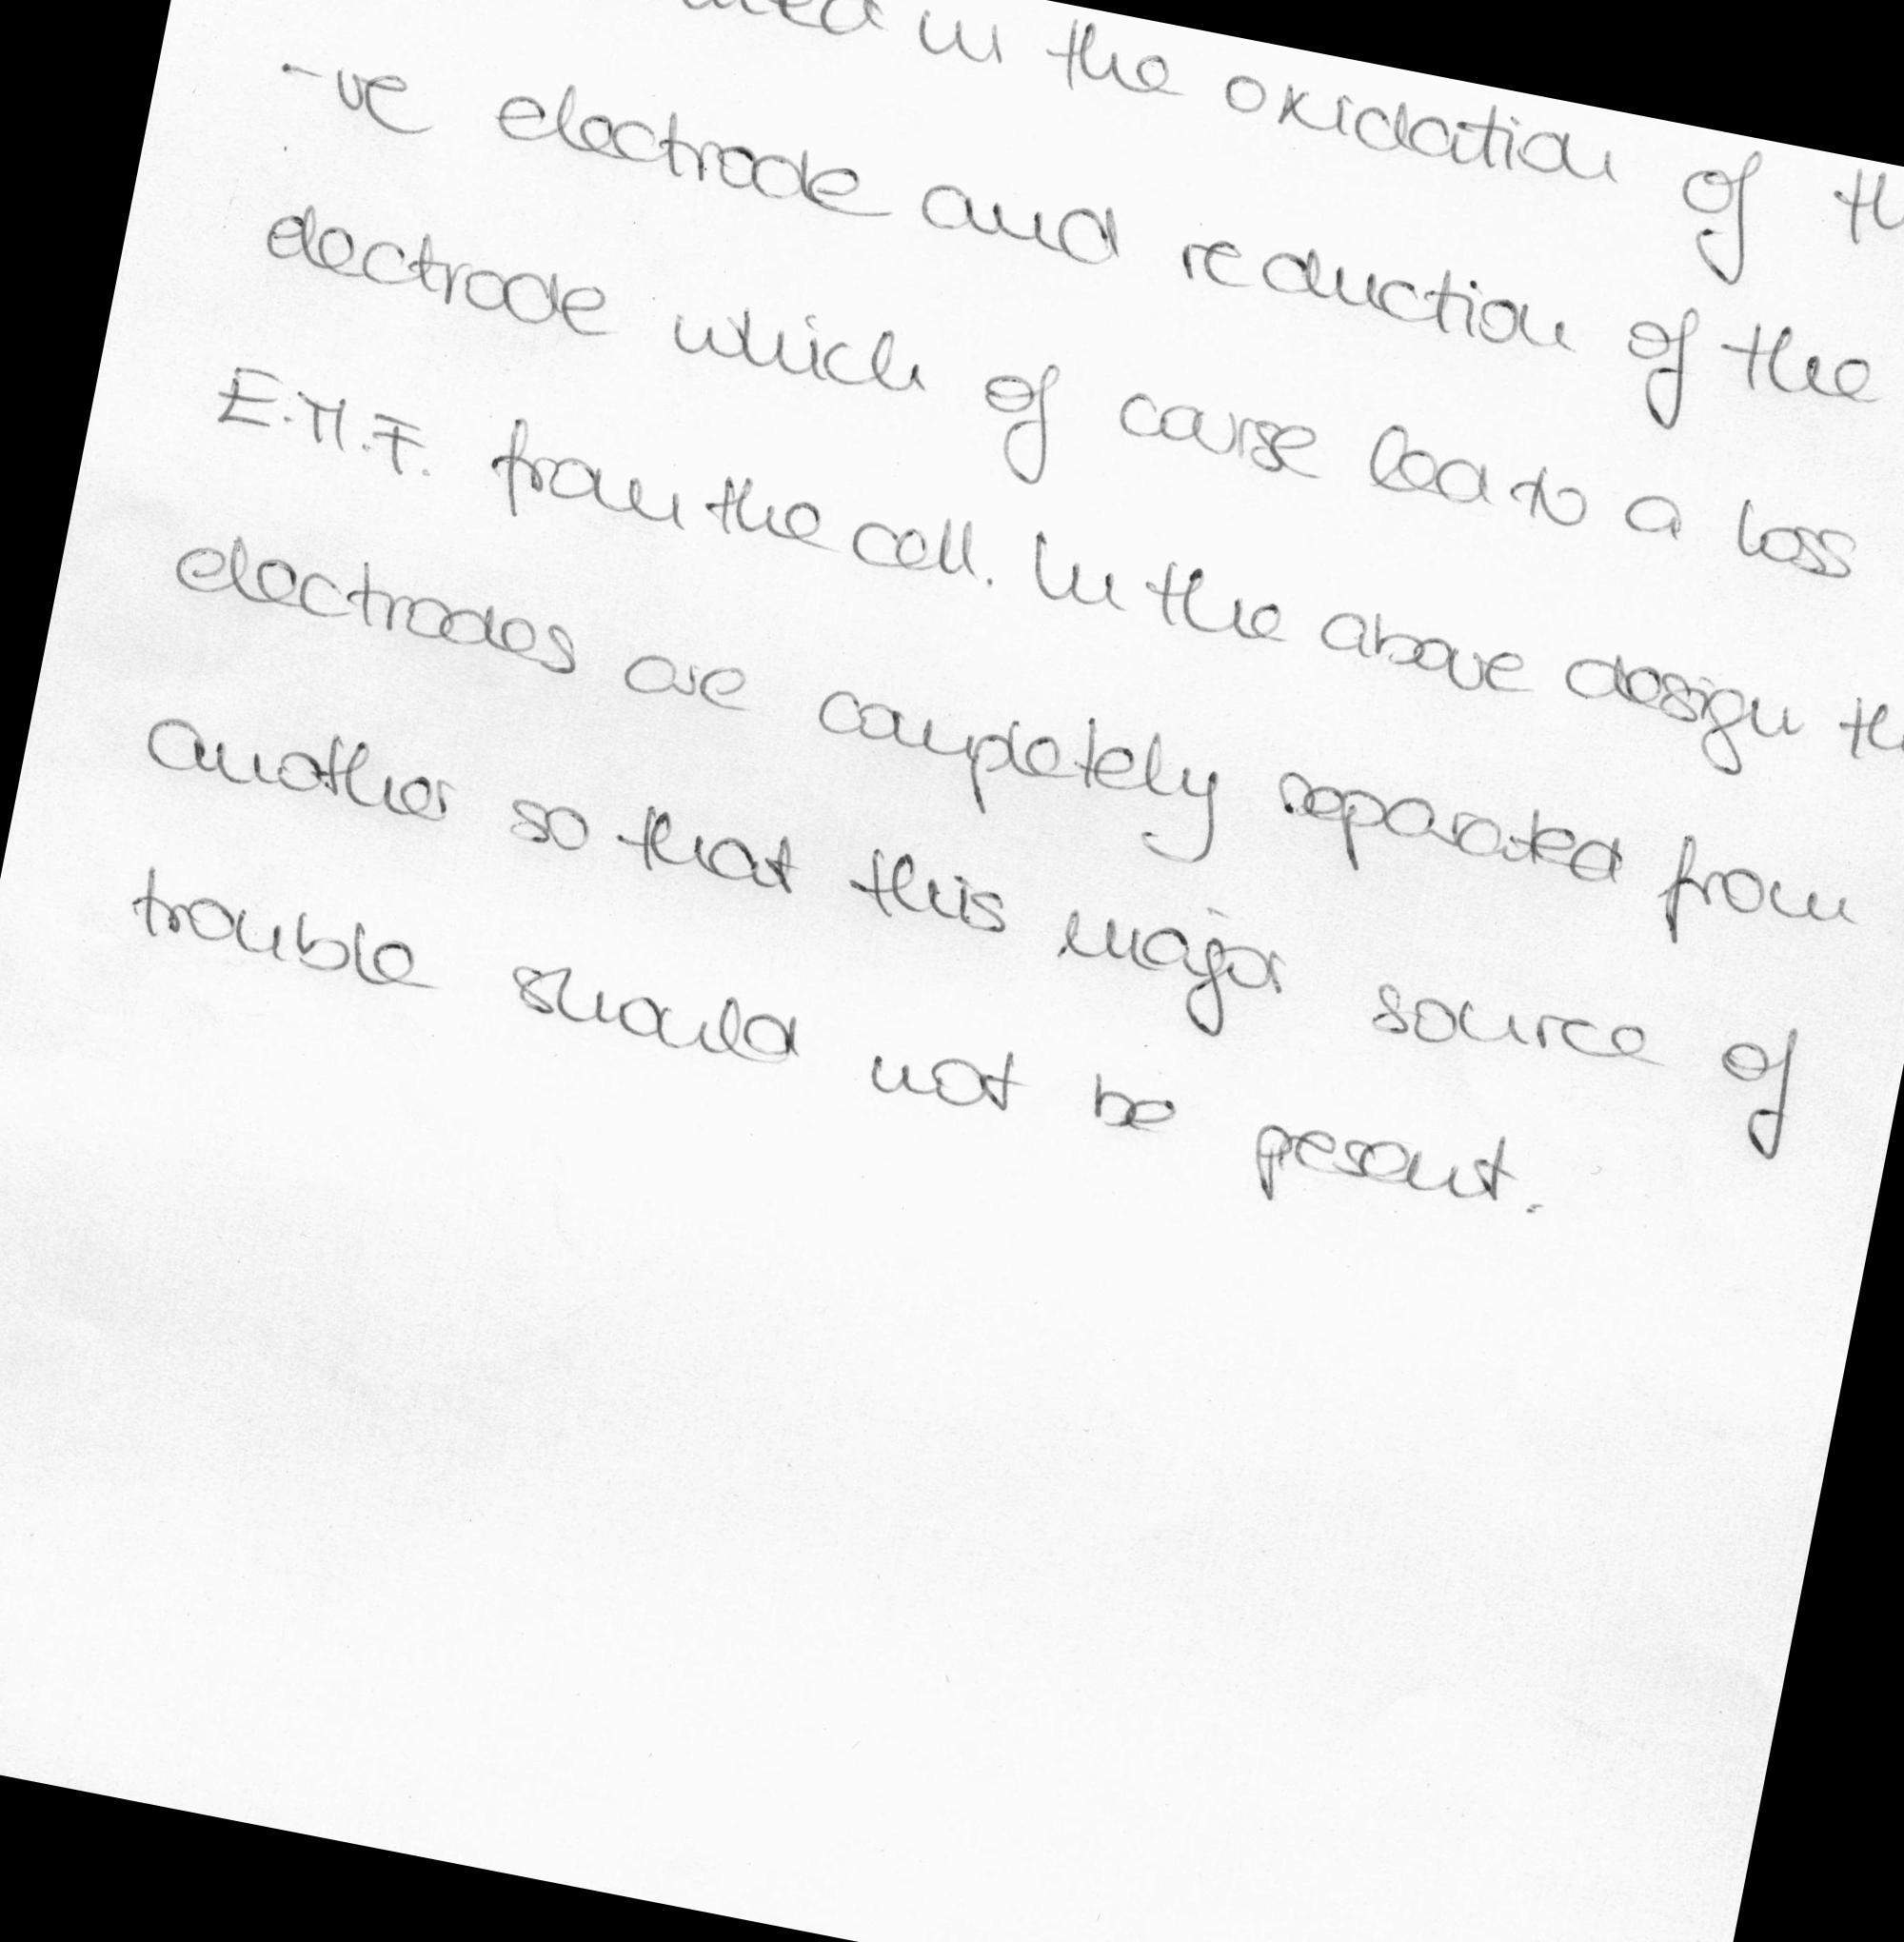 in the oxidation of
-ve electrode and reduction of the
electrode which of course lead to a loss
E.M.F. from the cell. In the above design
electrodes are completely separated from
another so that this major source of
trouble should not be pesent.